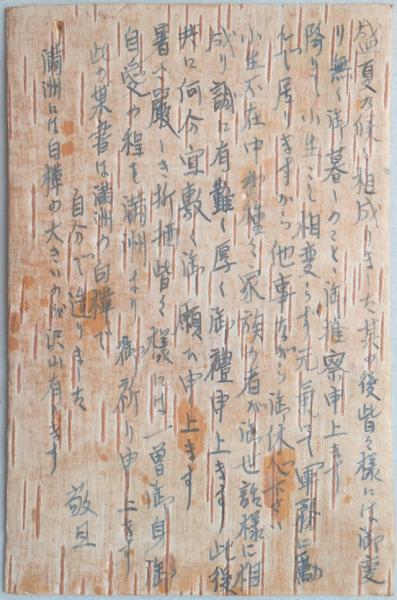 盛夏の候と相成りました其の後皆々様には御変
り無く御暮しのことゝ御推察申上ます
降りて小生こと相変らず元氣にて軍務に勵
んで居りますから他事ながら御休心下さい
小生不在中は種々家族の者が御世話様に相
成り誠に有難く厚く御禮申上ます此後
共に何分宜敷く御願ひ申上ます
暑さ嚴しき折柄皆々様には一層御身御
自愛の程を満洲より御祈り申上ます
敬具
此の葉書は満洲の白樺で
自分で造りました
満洲には白樺の大きいのが沢山有ります